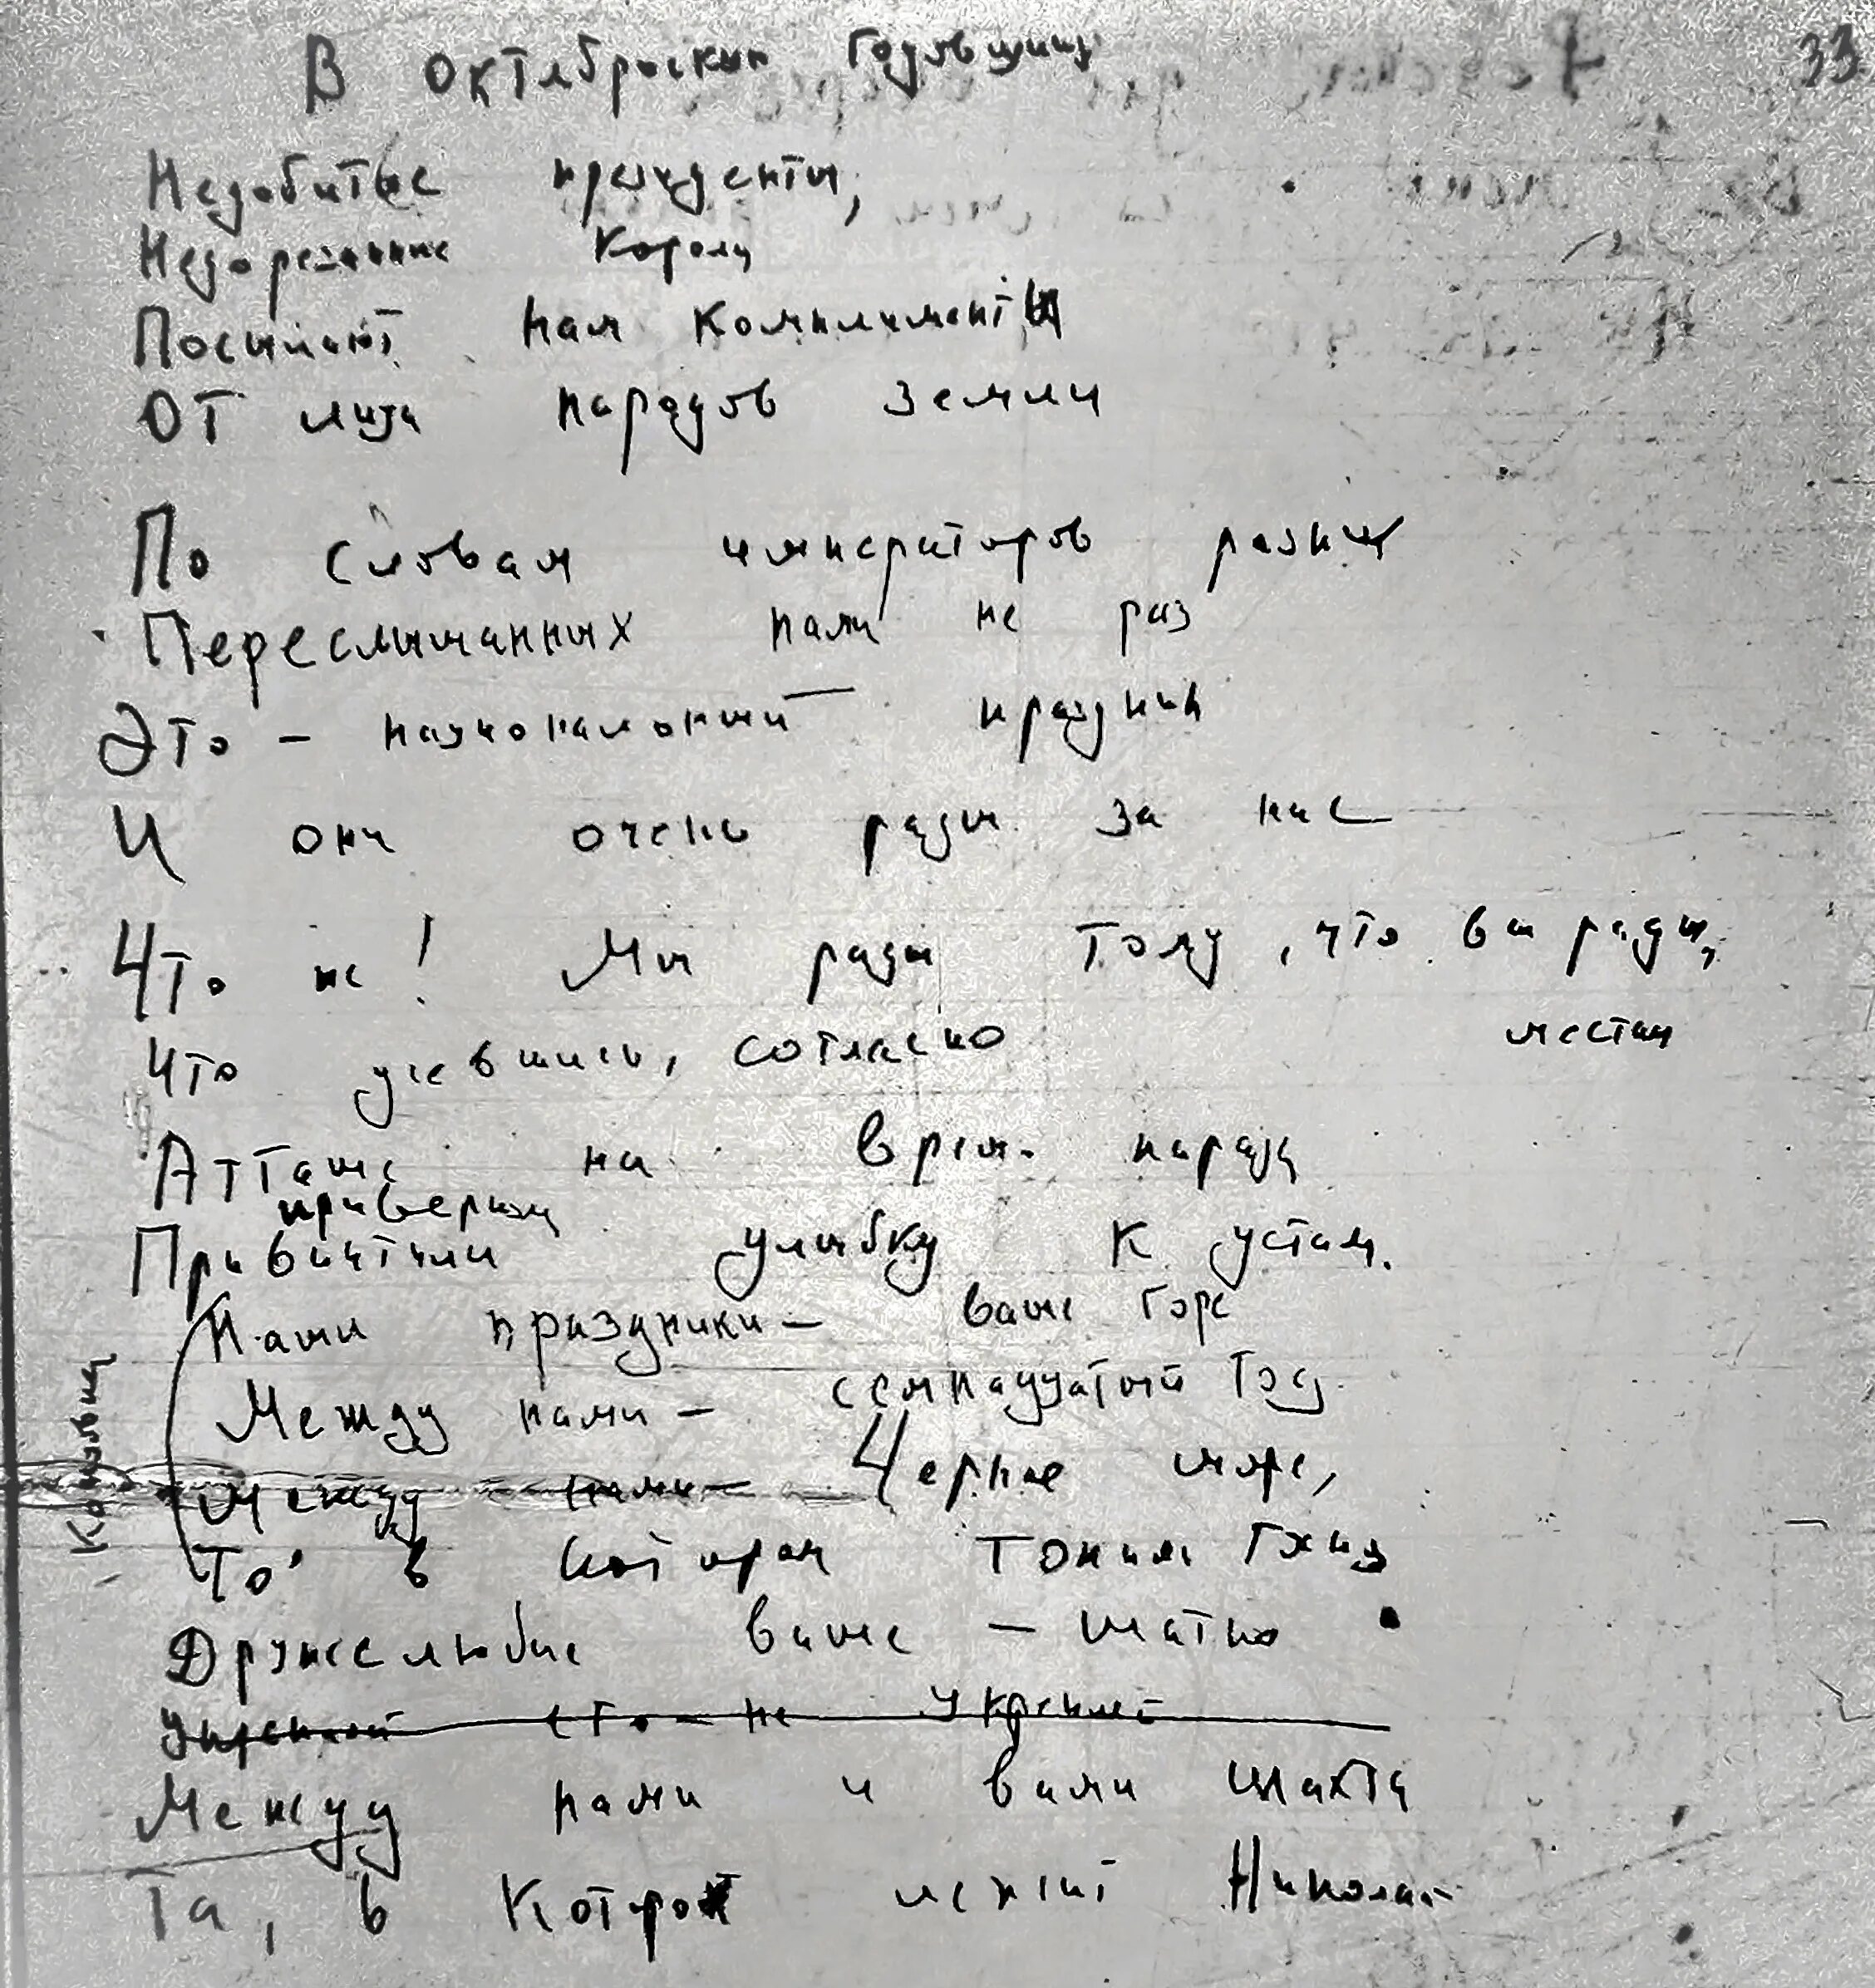 33
В октябрьскую годовщину
Недобитые президенты,
Недорезанные короли
Посылают нам комплименты
От лица народов земли
По словам императоров разных
Переслышанных нами не раз
Это - национальный праздник
И они очень рады за нас
Что ж! Мы рады тому, что вы рады,
Что усевшись, согласно местам
Атташе на врем. парада
приверну
Привинтили улыбку к устам.
Наши праздники - ваше горе
Между нами - семнадцатый год.
Между нами - Черное море,
То, в котором тонили
Дружелюбие ваше - шатко
не укрепит
Между нами и вами шахта
Та, в которой лежит Николай